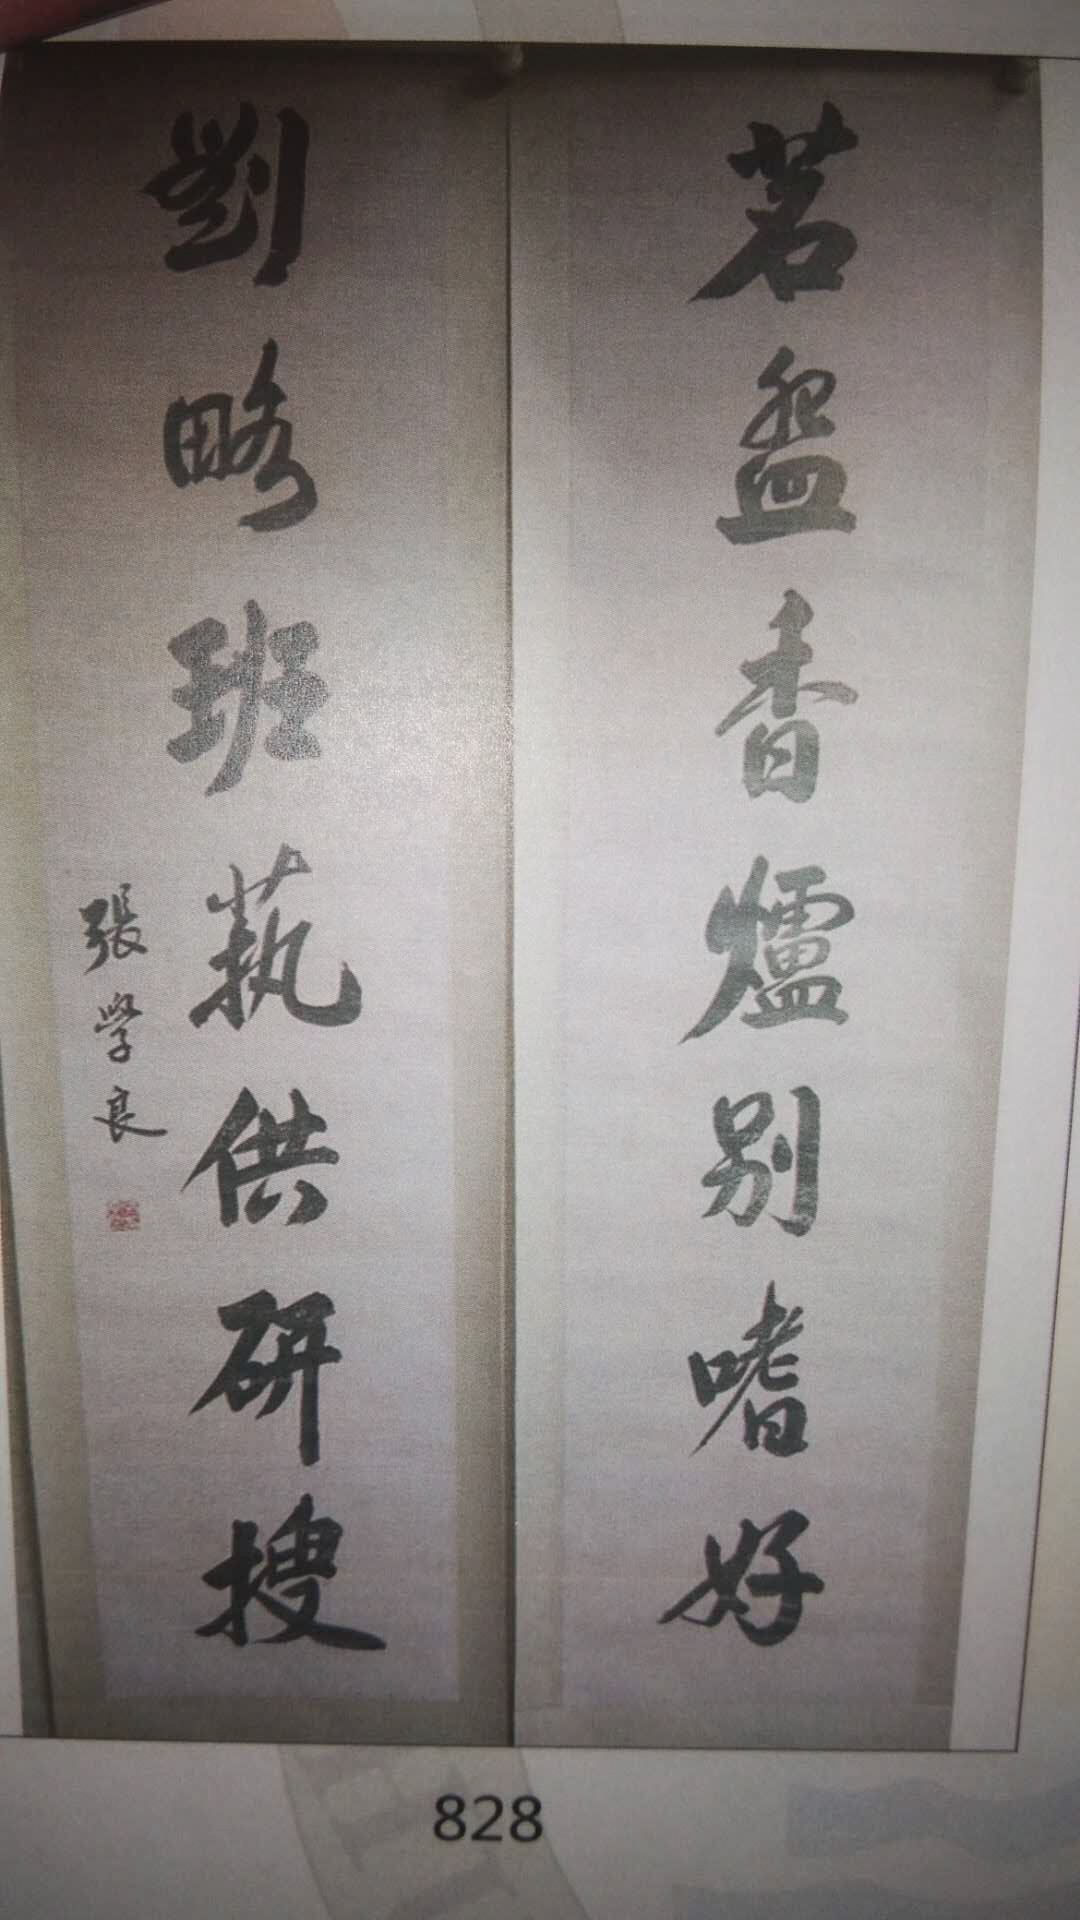 茗盌香爐别嗜好
劉略班藝供研搜
張學良
828